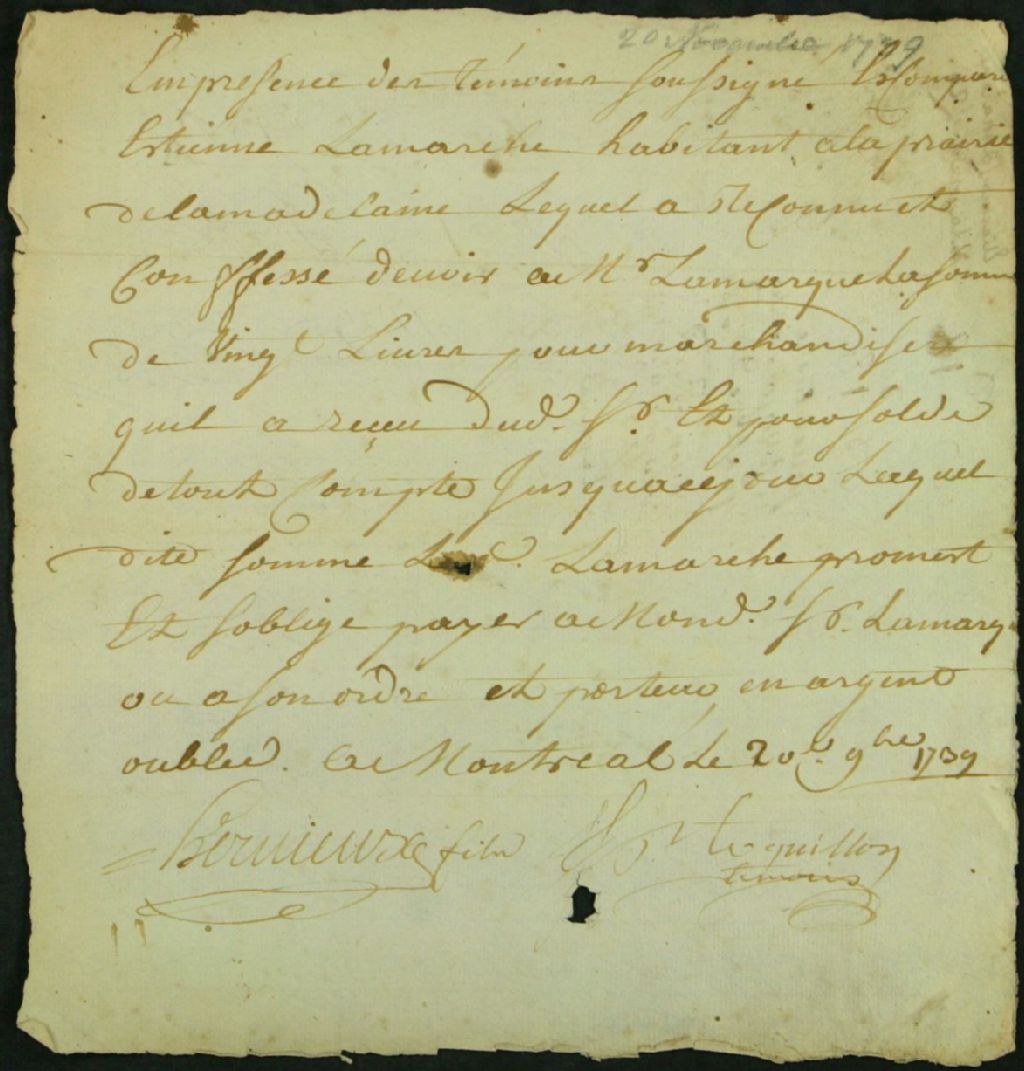 20 Novembre 1739
En presence des temoins soussigné Est Compare
Estienne Lamarche habitant a la prairie
de lamadelaine Lequel a ReConnu et
Conffessé deuoir a Mr Lamarque La somme
de Vingt Liures pour marchandises
quil a reçeu dud. Sr. Et pour solde
de tout Compte Jusqua cej our Laquel
dite somme Led. Lamarche promest
Et soblige payer a Mond. Sr. Lamarq
ou a son ordre et porteur en argent
oubled. a Montreal Le 20e. 9bre 1739
Bernieux fils
Lequillon
temoins